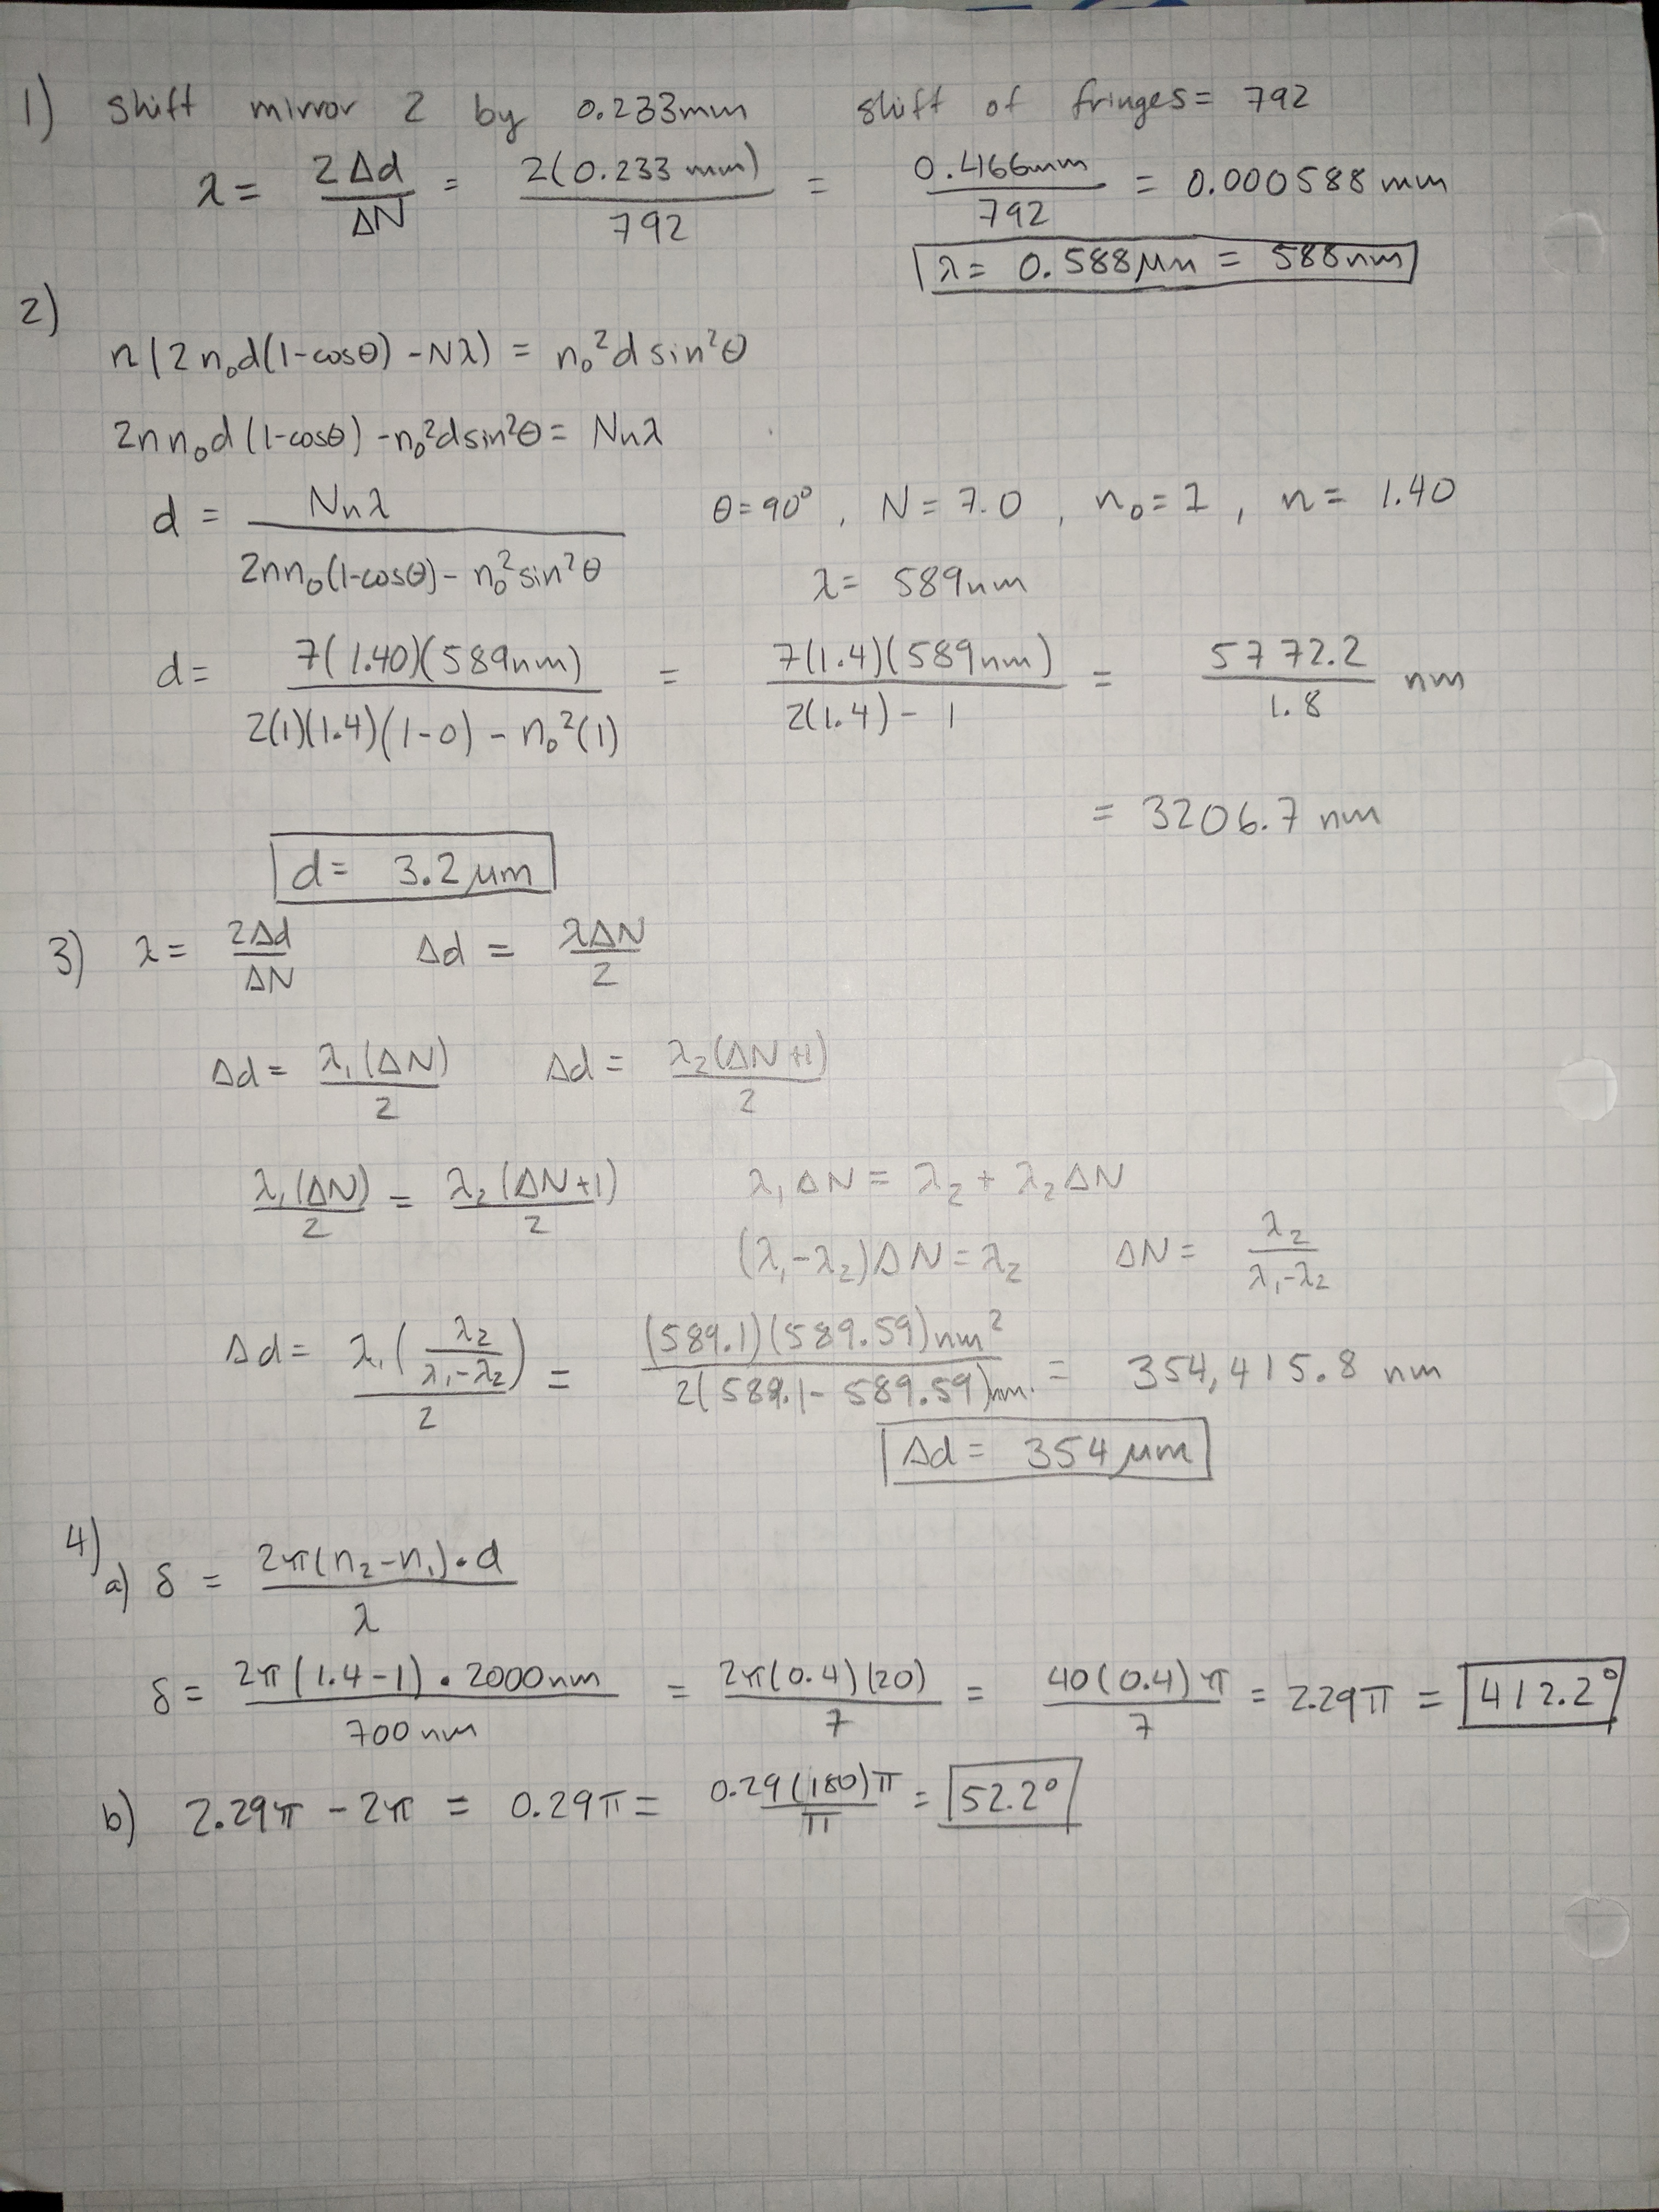 1) shift mirror 2 by 0.233mm shift of fringes = 792
λ = 2Δd/ΔN = 2(0.233 mm)/792 = 0.466mm/792 = 0.000588 mm
λ = 0.588μm = 588nm
2)
n(2n₀d(1-cosθ) - Nλ) = n₀²d sin²θ
2nn₀d(1-cosθ) - n₀²dsin²θ = Nnλ
d = Nnλ/(2nn₀(1-cosθ) - n₀²sin²θ) θ = 90°, N = 7.0, n₀ = 1, n = 1.40
λ = 589nm
d = 7(1.40)(589nm)/(2(1)(1.4)(1-0) - n₀²(1)) = 7(1.4)(589nm)/(2(1.4) - 1) = 5772.2/1.8 nm
= 3206.7 nm
d = 3.2 μm
3) λ = 2Δd/ΔN Δd = λΔN/2
Δd = λ₁(ΔN)/2 Δd = λ₂(ΔN+1)/2
λ₁(ΔN)/2 = λ₂(ΔN+1)/2 λ₁ΔN = λ₂ + λ₂ΔN
(λ₁-λ₂)ΔN = λ₂ ΔN = λ₂/(λ₁-λ₂)
Δd = λ₁(λ₂/(λ₁-λ₂))/2 = (589.1)(589.59)nm²/2(589.1 - 589.59)nm = 354,415.8 nm
Δd = 354 μm
4)
a) δ = 2π(n₂-n₁)·d/λ
δ = 2π(1.4-1)·2000nm/700nm = 2π(0.4)(20)/7 = 40(0.4)π/7 = 2.29π = 412.2°
b) 2.29π - 2π = 0.29π = 0.29(180)π/π = 52.2°